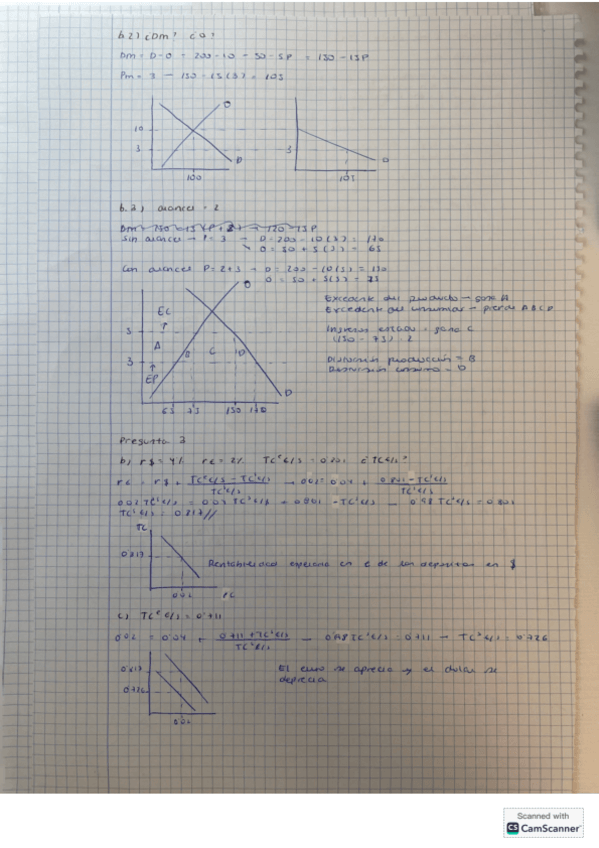 b.2) ¿Dm? ¿O?
Dm = D-O = 200-10 - 50-5P = 150-15P
Pm = 3 → 150-15(3) = 105
O
10
3
D
100
3
105
b.3) arancel = 2
Sin arancel → P=3 → D=200-10(3)=170
O=50+5(3)=65
Con arancel P=2+3 → D=200-10(5)=150
O=50+5(5)=75
O
EC
5
A
B C D
3
EP
D
65 75 150 170
Excedente del productor → gana A
Excedente del consumidor → pierde ABCD
Ingresos estado = gana C
(150-75)·2
Distorsión producción = B
Distorsión consumo = D
Pregunta 3
b) r$=4% r€=2% TCᵉ€/$=0'801 ¿TC€/$?
TC
0'817
0'02
Rentabilidad esperada en € de los depósitos en $
c) TCᵉ€/$=0'711
0'02 = 0'04 + (0'711+TC€/$)/TC€/$ → 0'98TC€/$=0'711 → TC€/$=0'726
0'817
0'726
0'02
El euro se aprecia y el dólar se
deprecia
Scanned with
CS CamScanner